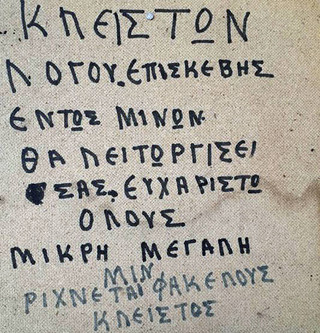 ΚΛΕΙΣΤΩΝ
ΛΟΓΟΥ. ΕΠΙΣΚΕΒΗΣ
ΕΝΤΩΣ ΜΙΝΩΝ
ΘΑ ΛΕΙΤΟΡΓΙΣΕΙ
ΣΑΣ. ΕΥΧΑΡΙΣΤΩ
ΟΛΟΥΣ
ΜΙΚΡΗ ΜΕΓΑΛΗ
ΜΙΝ
ΡΙΧΝΕΤΑΙ ΦΑΚΕΛΟΥΣ
ΚΛΕΙΣΤΟΣ